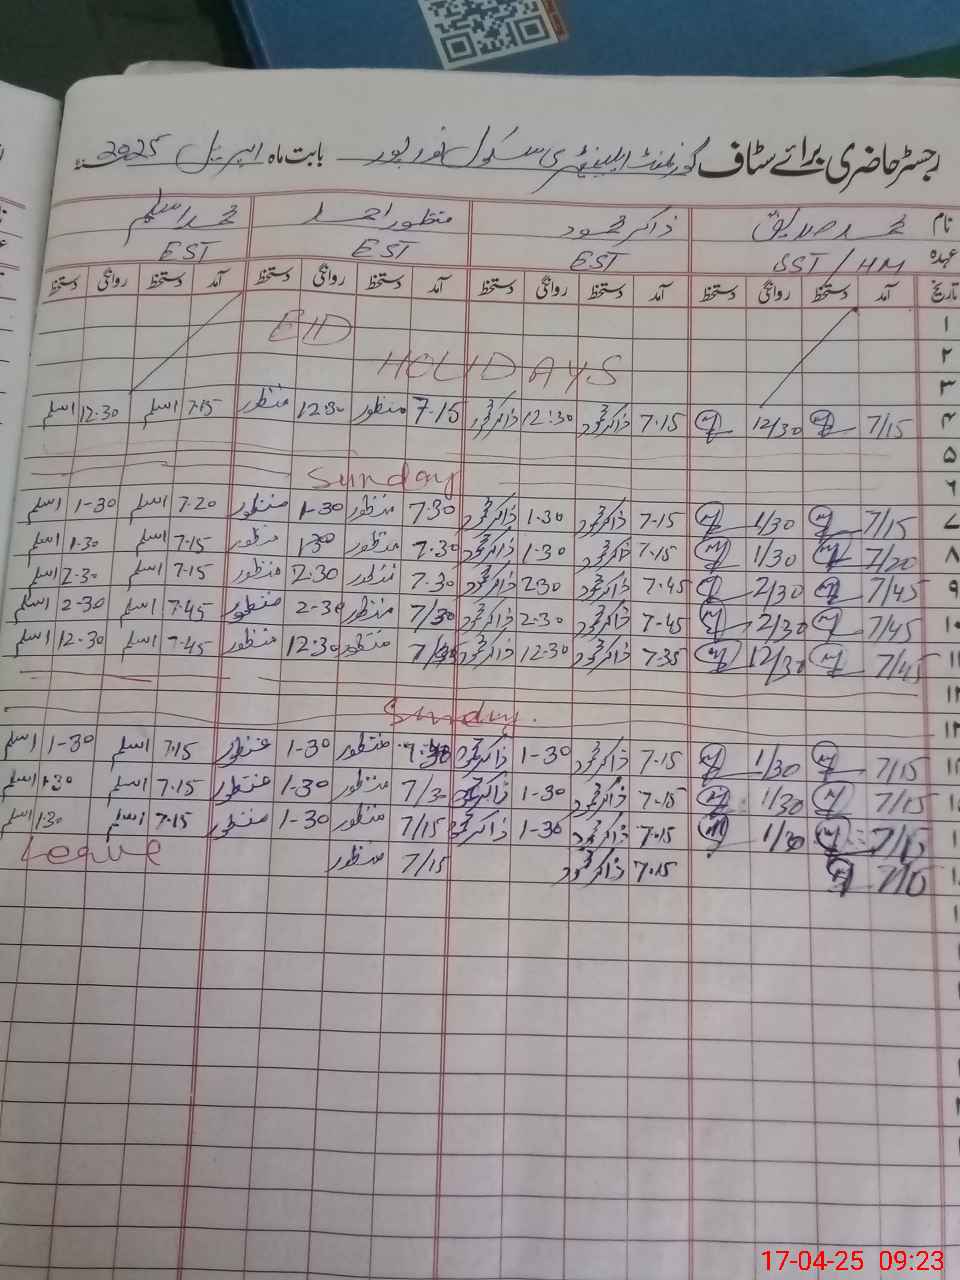 رجسٹر حاضری برائے سٹاف گورنمنٹ ایلیمنٹری سکول نور پور بابت ماہ اپریل 2025
نام محمد صدیق ذاکر محمود منظور احمد محمد اسلم
عہدہ SST/HM EST EST EST
تاریخ آمد دستخط روانگی دستخط آمد دستخط روانگی دستخط آمد دستخط روانگی دستخط آمد دستخط روانگی دستخط
۱ EID
۲ HOLIDAYS
۳
۴ 7/15 12/30 7.15 ذاکر محمود 12:30 ذاکر محمود 7.15 منظور 12:30 منظور 7.15 اسلم 12.30 اسلم
۵
۶ Sunday
۷ 7/15 1/30 7.15 ذاکر محمود 1.30 ذاکر محمود 7.30 منظور 1-30 منظور 7.20 اسلم 1-30 اسلم
۸ 7/20 1/30 7.15 ذاکر محمود 1.30 ذاکر محمود 7.30 منظور 1.30 منظور 7.15 اسلم 1.30 اسلم
۹ 7/45 2/30 7.45 ذاکر محمود 2.30 ذاکر محمود 7.30 منظور 2.30 منظور 7.15 اسلم 2.30 اسلم
۱۰ 7/45 2/30 7.45 ذاکر محمود 2.30 ذاکر محمود 7/30 منظور 2-30 منظور 7.45 اسلم 2-30 اسلم
۱۱ 7/45 12/30 7.35 ذاکر محمود 12.30 ذاکر محمود منظور 12:30 منظور 7.45 اسلم 12.30 اسلم
۱۲
۱۳ Sunday
7/15 1/30 7.15 ذاکر محمود 1-30 ذاکر محمود منظور 1-30 منظور 7.15 اسلم 1-30 اسلم
7/15 1/30 7.15 ذاکر محمود 1-30 ذاکر محمود 7/30 منظور 1-30 منظور 7.15 اسلم 1.30 اسلم
7/15 1/30 7.15 ذاکر محمود 1-30 ذاکر محمود 7/15 منظور 1-30 منظور 7.15 اسلم 1.30 اسلم
7/15 7.15 ذاکر محمود 7/15 منظور Leave
17-04-25 09:23